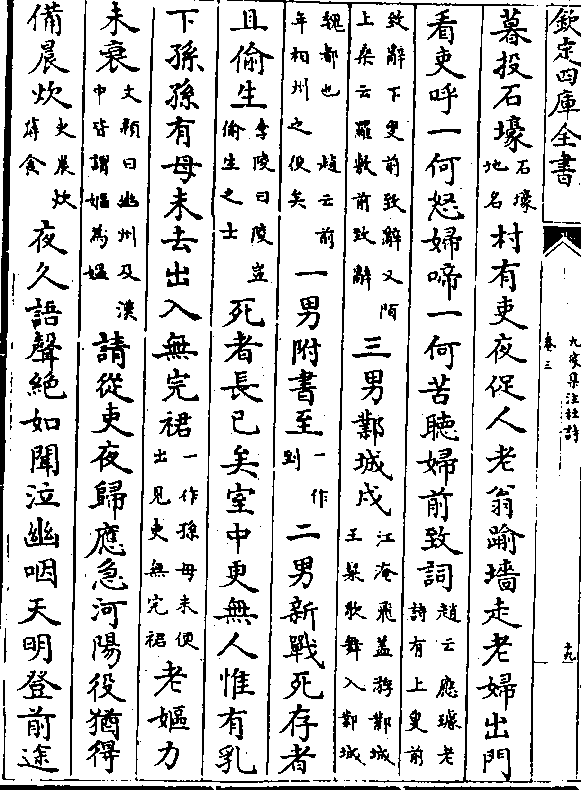 欽定四庫全書
九家集注杜詩
卷三
十九
暮投石壕石壕地名村有吏夜促人老翁踰墻走老婦出門
看吏呼一何怒婦啼一何苦聽婦前致詞趙云應璩老詩有上叟前
致辭下叟前致辭又陌上桑云羅敷前致辭三男鄴城戍江淹飛盖游鄴城王粲歌舞入鄴城
魏都也 趙云前年相州之便矣一男附書至一作到二男新戰死存者
且偷生李陵曰陵豈偷生之士死者長已矣室中更無人惟有乳
下孫孫有母未去出入無完裙一作孫母未便出見吏無完裙老嫗力
未衰文頴曰幽州及漢中皆謂嫗為媪請從吏夜歸應急河陽役猶得
備晨炊史晨炊蓐食夜久語聲絶如聞泣幽咽天明登前途